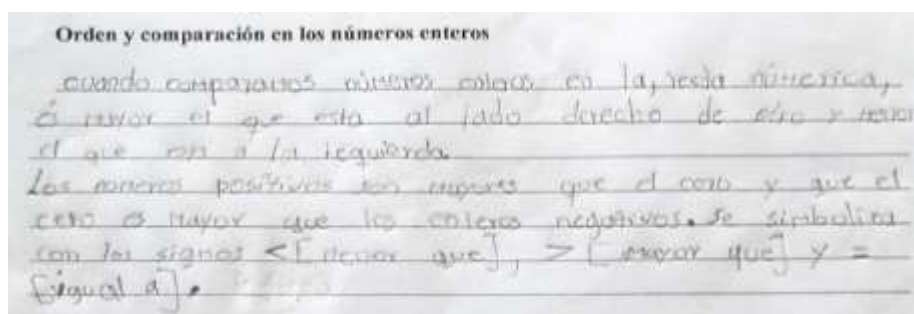 Orden y comparación en los números enteros
cuando comparamos números enteros en la recta númerica,
es mayor el que esta al lado derecho de otro y menor
el que esta a la izquierda.
Los números positivos son mayores que el cero y que el
cero es mayor que los enteros negativos. se simboliza
con los signos <[menor que], >[mayor que] y =
[igual a].